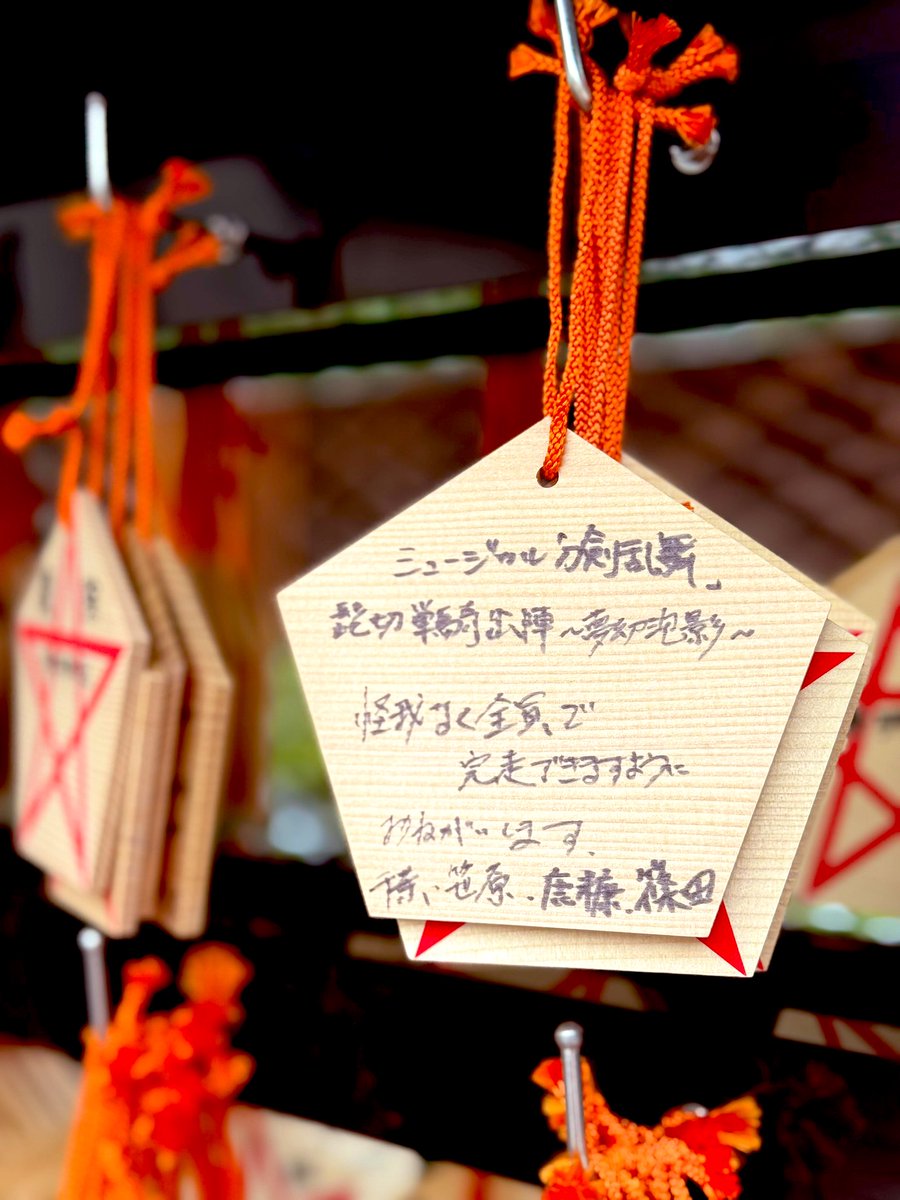 ミュージカル 刀剣乱舞」
髭切 單騎出陣 ~夢幻泡影~
怪我なく全員で
完走できますように
おねがいします、
笹原、篠田